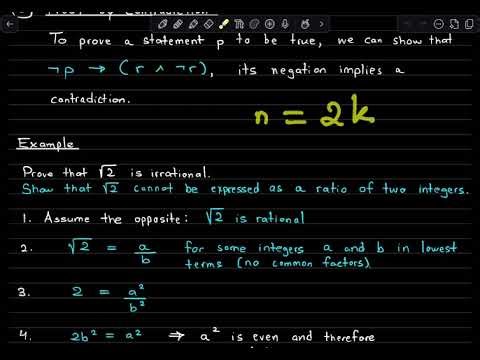 Proof by Contradiction
To prove a statement p to be true, we can show that
¬p → (r ∧ ¬r), its negation implies a
contradiction.
n = 2k
Example
Prove that √2 is irrational.
Show that √2 cannot be expressed as a ratio of two integers.
1. Assume the opposite: √2 is rational
2. √2 = a/b for some integers a and b in lowest
terms (no common factors)
3. 2 = a²/b²
4. 2b² = a² ⇒ a² is even and therefore